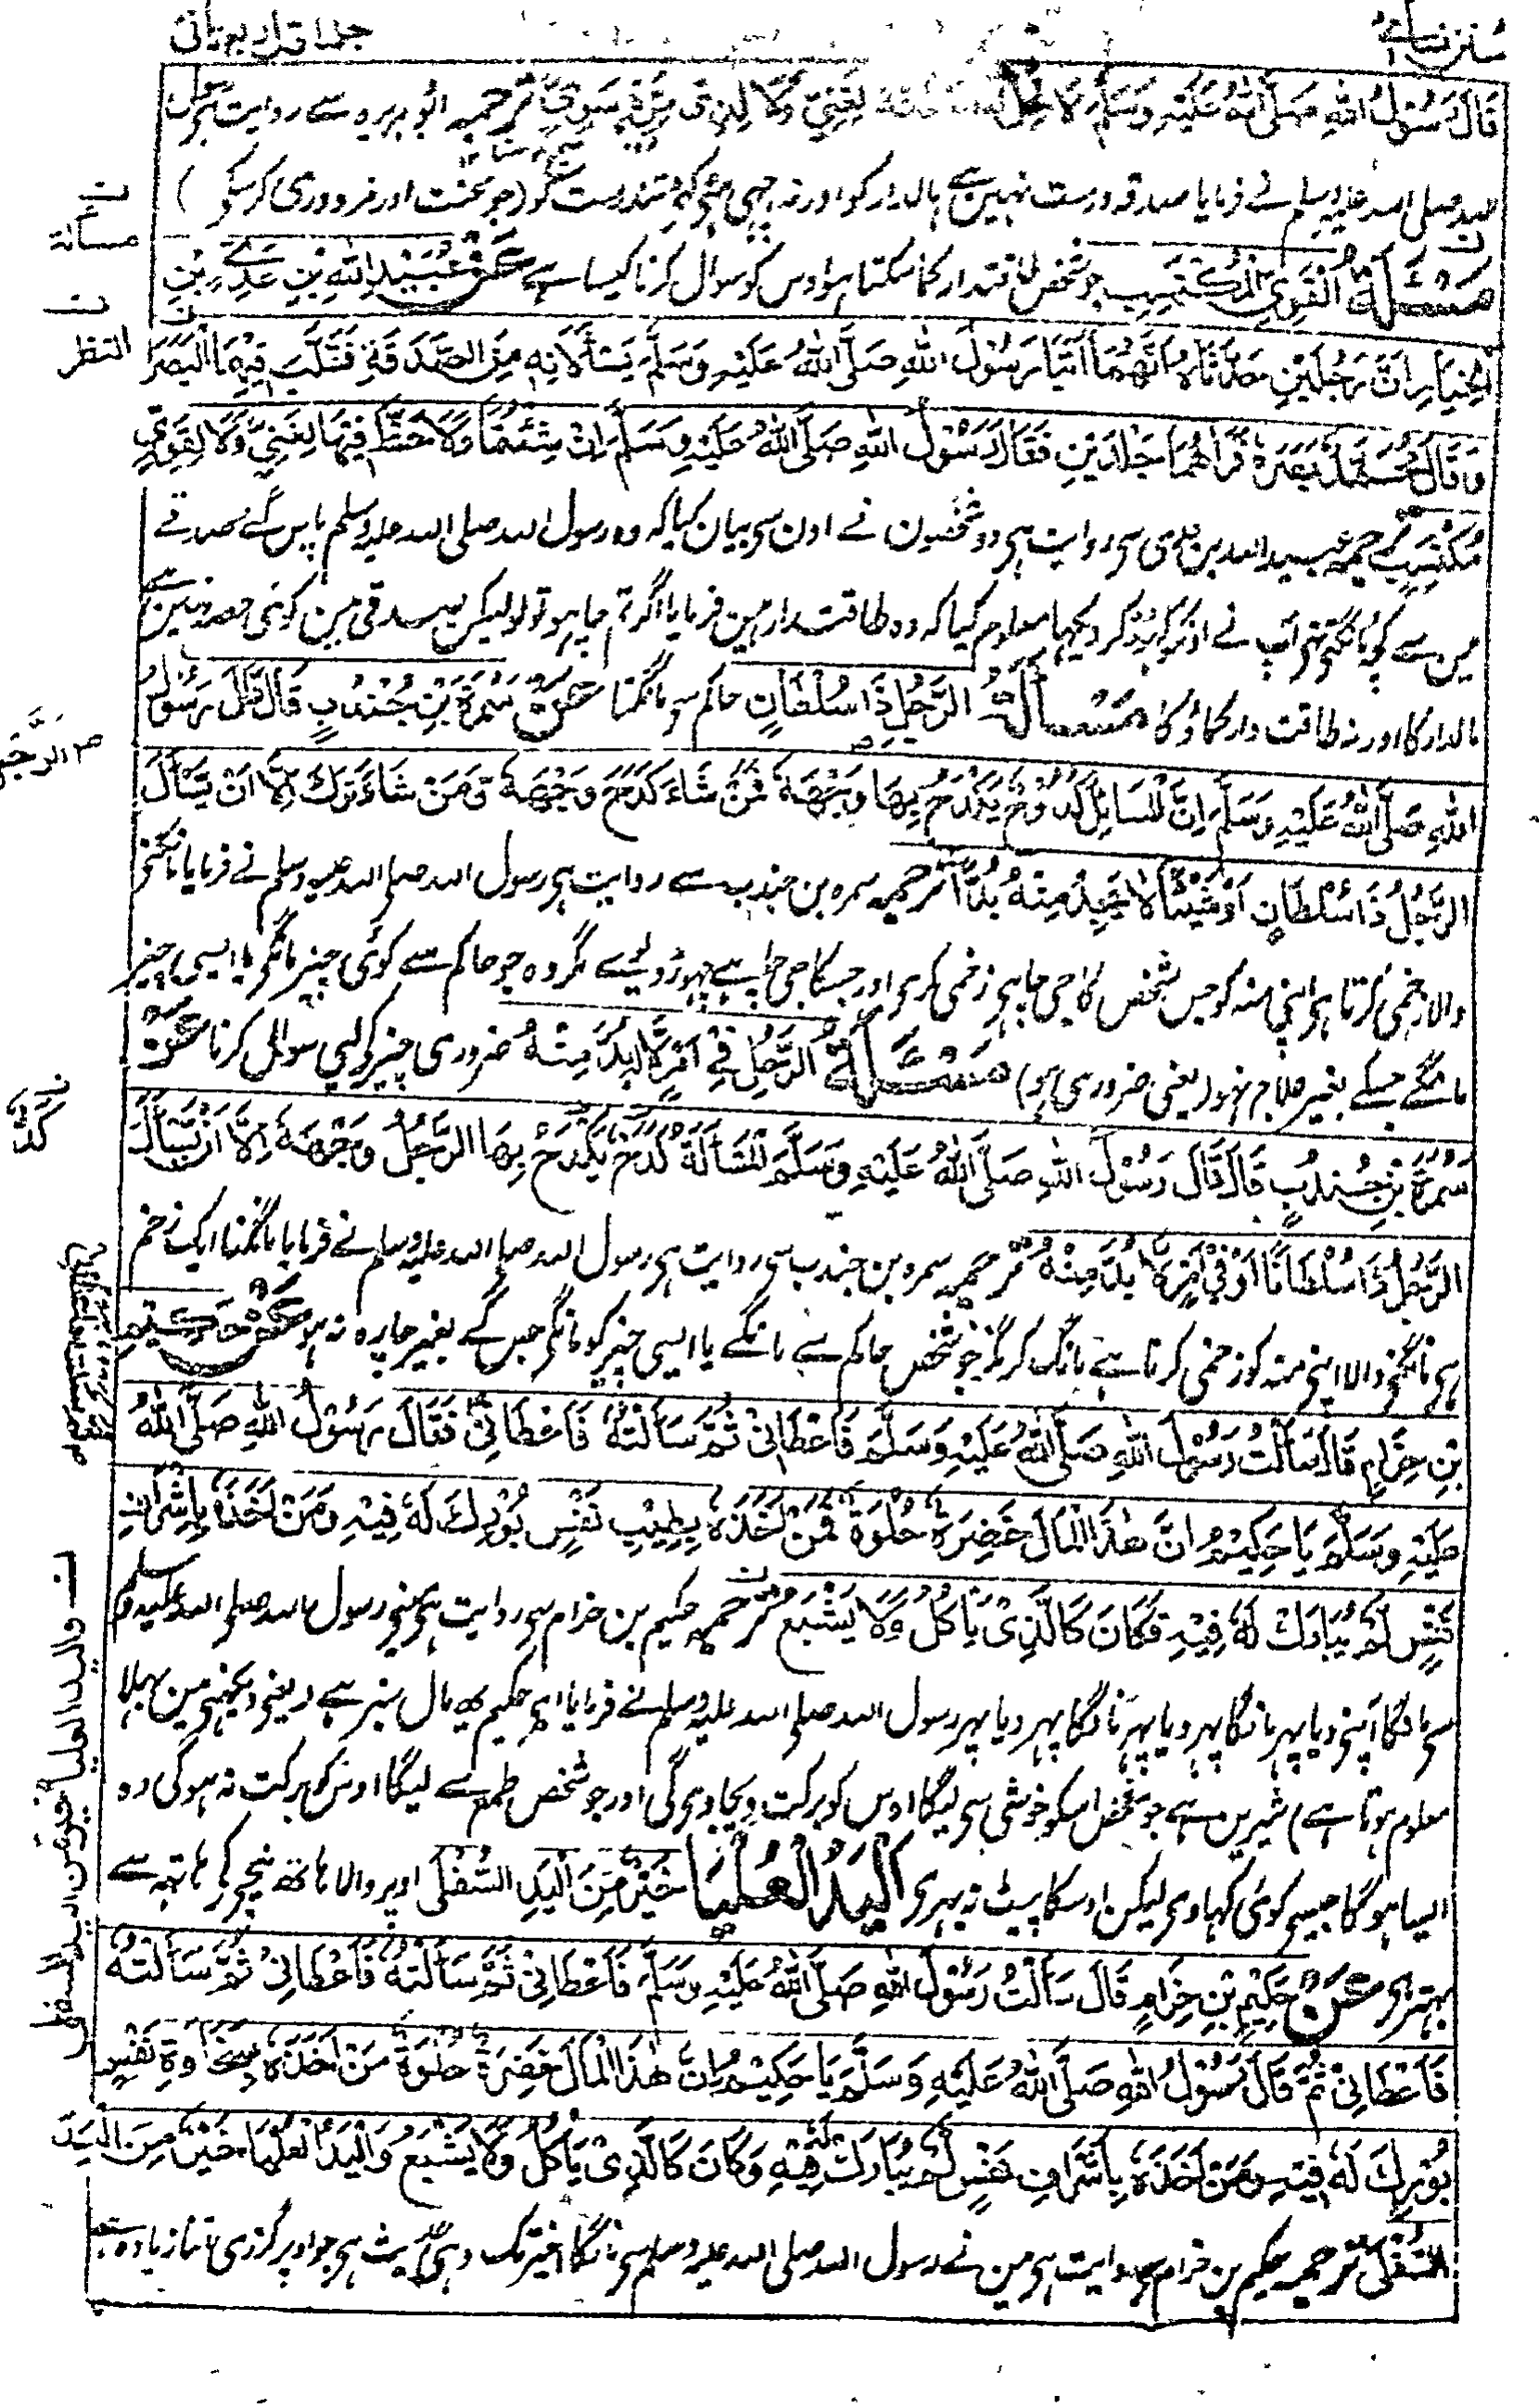 سنن نسائی
جلد اول ربع ثانی
قَالَ رَسُوْلُ اللهِ صَلَّى اللهُ عَلَيْهِ وَسَلَّمَ لَا تَحِلُّ الصَّدَقَةُ لِغَنِيٍّ وَّلَا لِذِىْ مِرَّةٍ سَوِيٍّ ترجمہ ابو ہریرہ سے روایت ہی رسول
اللہ صلی اللہ علیہ وسلم نے فرمایا صدقہ درست نہین ہے مالدار کو اور نہ تندرست کو (جو محنت اور مزدوری کر سکے)
مَسْئَلَةُ الْقَوِيِّ الْمُكْتَسِبِ جو شخص طاقتدار کما سکتا ہو اوس کو سوال کرنا کیسا ہے عَنْ عُبَيْدِ اللهِ بْنِ عَدِيِّ بْنِ
الْخِيَارِ اَنَّ رَجُلَيْنِ حَدَّثَاهُ اَنَّهُمَا اَتَيَا رَسُوْلَ اللهِ صَلَّى اللهُ عَلَيْهِ وَسَلَّمَ يَسْأَلَانِهِ مِنَ الصَّدَقَةِ فَقَلَّبَ فِيْهِمَا الْبَصَرَ
وَقَالَ مُحَمَّدٌ بَصَرَهُ فَرَاٰهُمَا جَلْدَيْنِ فَقَالَ رَسُوْلُ اللهِ صَلَّى اللهُ عَلَيْهِ وَسَلَّمَ اِنْ شِئْتُمَا وَلَا حَظَّ فِيْهَا لِغَنِيٍّ وَّلَا لِقَوِيٍّ
مُكْتَسِبٍ ترجمہ عبید اللہ بن عدی سی روایت ہی دو شخصون نے اون سی بیان کیا کہ وہ رسول اللہ صلی اللہ علیہ وسلم پاس گئے صدقے
مین سے کچھ مانگتی تہی آپ نے دیکہا معلوم کیا کہ وہ طاقت دار ہین فرمایا اگر تم چاہو تو لو لیکن صدقی مین کوئی حصہ نہین ہے
مالدار کا اور نہ طاقت دار کماؤ کا مَسْأَلَةُ الرَّجُلِ ذَا سُلْطَانٍ حاکم سی مانگنا عَنْ سَمُرَةَ بْنِ جُنْدُبٍ قَالَ قَالَ رَسُوْلُ
اللهِ صَلَّى اللهُ عَلَيْهِ وَسَلَّمَ اِنَّ الْمَسَائِلَ كُدُوْحٌ يَكْدَحُ بِهَا وَجْهَهُ فَمَنْ شَاءَ كَدَحَ وَجْهَهُ وَمَنْ شَاءَ تَرَكَ اِلَّا اَنْ يَّسْأَلَ
الرَّجُلُ ذَا سُلْطَانٍ اَوْ شَيْئًا لَا يَجِدُ مِنْهُ بُدًّا ترجمہ سمرہ بن جندب سے روایت ہی رسول اللہ صلی اللہ علیہ وسلم نے فرمایا مانگنی
والا زخمی کرتا ہی اپنی منہ کو جس شخص کا جی چاہی زخمی کری اور جسکا جی چاہے چہوڑ دیے مگر وہ جو حاکم سے کوئی چیز مانگی یا ایسی چیز
مانگے جسکے بغیر علاج نہو (یعنی ضروری ہو) مَسْئَلَةُ الرَّجُلِ فِيْ اَمْرٍ لَّا بُدَّ مِنْهُ ضروری چیز کی لیی سوال کرنا عَنْ
سَمُرَةَ بْنِ جُنْدُبٍ قَالَ قَالَ رَسُوْلُ اللهِ صَلَّى اللهُ عَلَيْهِ وَسَلَّمَ الْمَسْأَلَةُ كَدْحٌ يَكْدَحُ بِهَا الرَّجُلُ وَجْهَهُ اِلَّا اَنْ يَّسْأَلَ
الرَّجُلُ ذَا سُلْطَانًا اَوْ فِيْ اَمْرٍ لَّا بُدَّ مِنْهُ ترجمہ سمرہ بن جندب سی روایت ہی رسول اللہ صلی اللہ علیہ وسلم نے فرمایا مانگنا ایک زخم
ہی مانگنی والا اپنی منہ کو زخمی کرتا ہے مانگ کر مگر جو شخص حاکم سے مانگے یا ایسی چیز کو مانگی جس کے بغیر چارہ نہ ہو عَنْ حَكِيْمِ
بْنِ حِزَامٍ قَالَ سَأَلْتُ رَسُوْلَ اللهِ صَلَّى اللهُ عَلَيْهِ وَسَلَّمَ فَاَعْطَانِىْ ثُمَّ سَأَلْتُهُ فَاَعْطَانِىْ فَقَالَ رَسُوْلُ اللهِ صَلَّى اللهُ
عَلَيْهِ وَسَلَّمَ يَا حَكِيْمُ اِنَّ هٰذَا الْمَالَ خَضِرَةٌ حُلْوَةٌ فَمَنْ اَخَذَهُ بِطِيْبِ نَفْسٍ بُوْرِكَ لَهُ فِيْهِ وَمَنْ اَخَذَهُ بِاِشْرَافِ
نَفْسٍ لَمْ يُبَارَكْ لَهُ فِيْهِ فَكَانَ كَالَّذِىْ يَأْكُلُ وَلَا يَشْبَعُ ترجمہ حکیم بن حزام سی روایت ہی مینی رسول اللہ صلی اللہ علیہ وسلم
سی مانگا آپنی دیا پہر مانگا پہر دیا پہر مانگا پہر دیا پہر رسول اللہ صلی اللہ علیہ وسلم نے فرمایا ای حکیم یہ مال سبز ہے (یعنی دیکہنی مین بہلا
معلوم ہوتا ہے) شیرین ہے جو شخص اسکو خوشی سی لیگا اوس کو برکت دیجاوی گی اور جو شخص طمع سے لیگا اوس کو برکت نہ ہوگی وہ
ایسا ہوگا جیسی کوئی کہاوی لیکن اوسکا پیٹ نہ بہری اَلْيَدُ الْعُلْيَا خَيْرٌ مِّنَ الْيَدِ السُّفْلٰى اوپر والا ہاتھ نیچی کے ہاتہہ سے
بہتر ہی عَنْ حَكِيْمِ بْنِ حِزَامٍ قَالَ سَأَلْتُ رَسُوْلَ اللهِ صَلَّى اللهُ عَلَيْهِ وَسَلَّمَ فَاَعْطَانِىْ ثُمَّ سَأَلْتُهُ فَاَعْطَانِىْ ثُمَّ سَأَلْتُهُ
فَاَعْطَانِىْ ثُمَّ قَالَ رَسُوْلُ اللهِ صَلَّى اللهُ عَلَيْهِ وَسَلَّمَ يَا حَكِيْمُ اِنَّ هٰذَا الْمَالَ خَضِرَةٌ حُلْوَةٌ مَنْ اَخَذَهُ بِسَخَاوَةِ نَفْسٍ
بُوْرِكَ لَهُ فِيْهِ وَمَنْ اَخَذَهُ بِاِشْرَافِ نَفْسٍ لَمْ يُبَارَكْ لَهُ فِيْهِ وَكَانَ كَالَّذِىْ يَأْكُلُ وَلَا يَشْبَعُ وَالْيَدُ الْعُلْيَا خَيْرٌ مِنَ الْيَدِ
السُّفْلٰى ترجمہ حکیم بن حزام سی روایت ہی مین نے رسول اللہ صلی اللہ علیہ وسلم سی مانگا اخیر تک وہی حدیث ہی جو اوپر گزری اتنا زیادہ ہے
ن
مسألة
ن
النظر
الرجل
ن
كد
ن واليد العليا خير من اليد السفلى